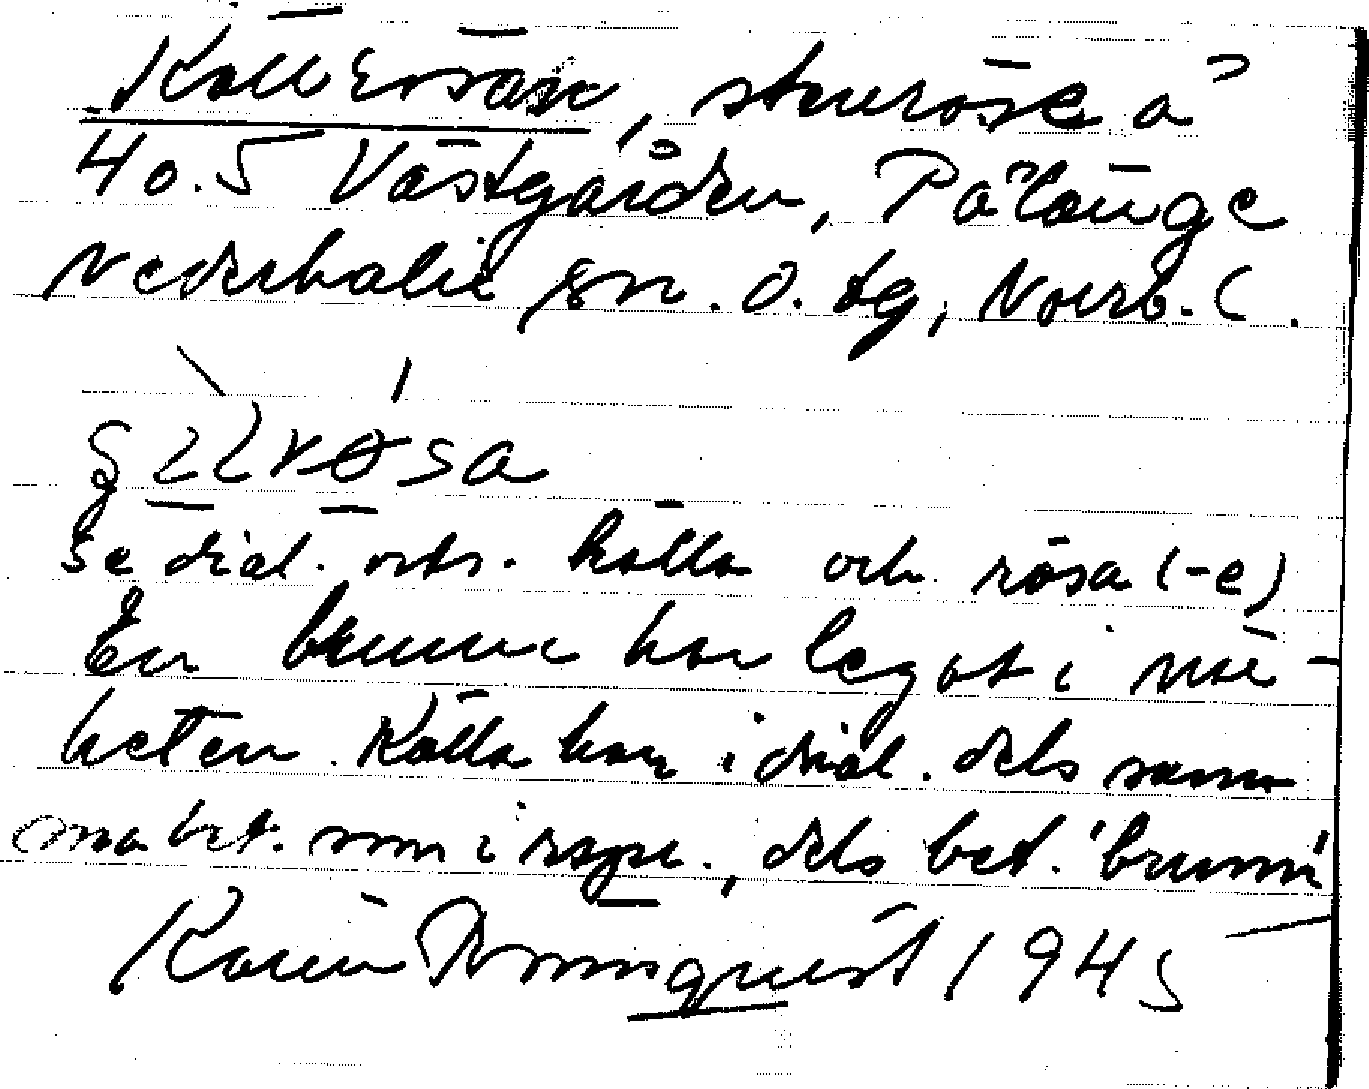 Källerösan, stenröse å
40.5 Västgården, Pålänge
Nederkalix sn. ö. tg, Norrb. l.
se dial. ortn. källa och rösa (-e)
En brunn har legat i när-
heten. Källa har i dial. dels sam-
ma bet. som i rspr., dels bet. 'brunn'
Karin 1945